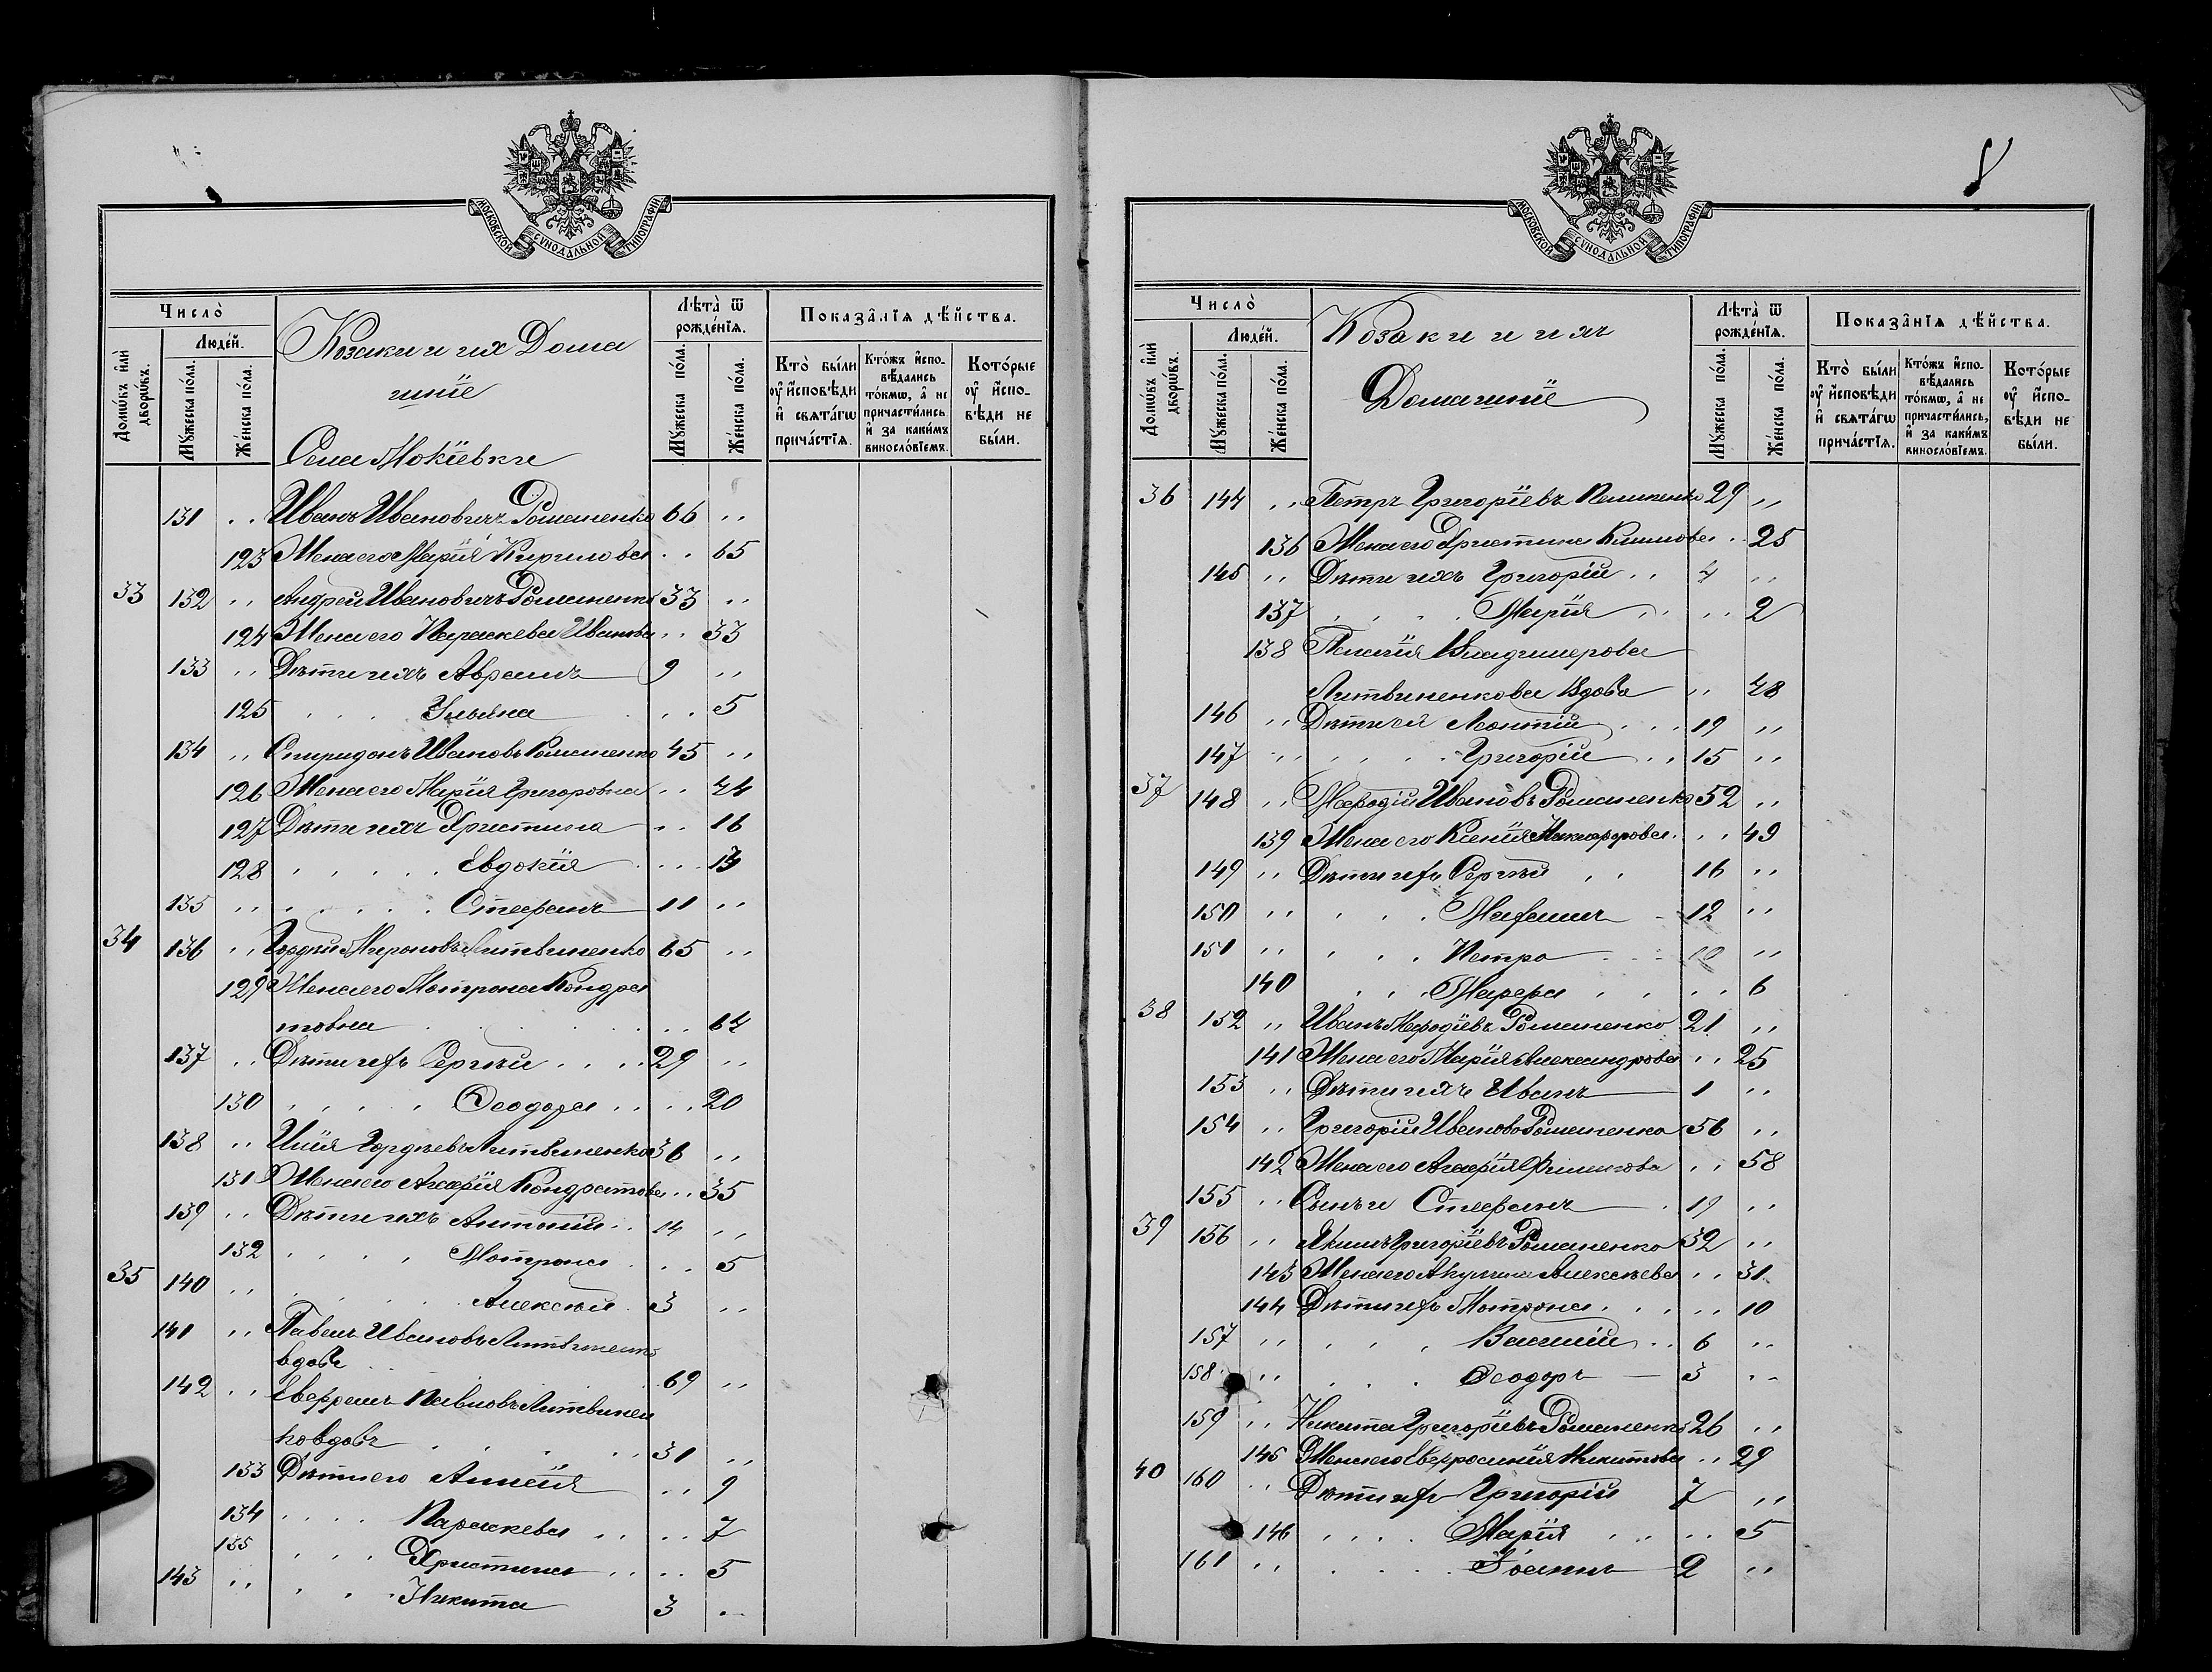 МОСКОВСКОЙ СУНОДАЛЬНОЙ ТИПОГРАФІИ
Число̀
Домѡ́въ и҆лѝ дворѡ́въ.
Люде́й.
Мꙋ́жеска по́ла.
Же́нска по́ла.
Козаки и их Дома
шніе
Села Мокіевки
Лѣта̀ ѿ рожде́нїѧ.
Мꙋ́жеска по́ла.
Же́нска по́ла.
Показа̑нїѧ дѣ́йства.
Кто̀ бы́ли ᲂу҆ и҆сповѣди и҆ свѧта́гѡ прича́стїѧ.
Кто́жъ и҆спо-вѣдались то́кмѡ, а҆ не причасти́лись и҆ за каки́мъ винослові́емъ.
Кото́рые ᲂу҆ и҆спо-вѣди не бы́ли.
131 ,, Иванъ Ивановичъ Романенко 66 ,,
123 Жена его Марія Кирилова ,, 65
33 132 ,, Андрей Ивановичъ Романенко 33 ,,
124 Жена его Параскева Иванова ,, 33
133 ,, Дѣти ихъ Аврамъ 9 ,,
125 Ульяна ,, 5
134 ,, Спиридонъ Ивановъ Романенко 45 ,,
126 Жена его Марія Григоровна ,, 44
127 Дѣти ихъ Христина ,, 16
128 Евдокія ,, 13
135 ,, Стефанъ 11 ,,
34 136 ,, Гордѣй Мироновъ Литвиненко 65 ,,
129 Жена его Мотрона Кондра
товна ,, 64
137 ,, Дѣти ихъ Сергѣй 29 ,,
130 Ѳеодора ,, 20
138 ,, Илія Гордѣевъ Литвиненко 36 ,,
131 Жена его Агафія Кондратова ,, 35
139 ,, Дѣти ихъ Антоній 14 ,,
132 Мотрона ,, 5
35 140 ,, Алексѣй 3 ,,
141 ,, Павелъ Ивановъ Литвиненко
вдовъ 69 ,,
142 ,, Евфремъ Павловъ Литвинен
ко вдовъ 31 ,,
133 Дѣти его ,, 9
134 Параскева ,, 7
135 Христина ,, 5
143 ,, Никита 3 ,,
8
МОСКОВСКОЙ СУНОДАЛЬНОЙ ТИПОГРАФІИ
Число̀
Домѡ́въ и҆лѝ дворѡ́въ.
Люде́й.
Мꙋ́жеска по́ла.
Же́нска по́ла.
Козаки и ихъ
Домашніе
Лѣта̀ ѿ рожде́нїѧ.
Мꙋ́жеска по́ла.
Же́нска по́ла.
Показа̑нїѧ дѣ́йства.
Кто̀ бы́ли ᲂу҆ и҆сповѣди и҆ свѧта́гѡ прича́стїѧ.
Кто́жъ и҆спо-вѣдались то́кмѡ, а҆ не причасти́лись, и҆ за каки́мъ винослові́емъ.
Кото́рые ᲂу҆ и҆спо-вѣди не бы́ли.
36 144 ,, Петръ Григоріевъ 29 ,,
136 Жена его Христина Климова ,, 25
145 ,, Дѣти ихъ Григорій 4 ,,
137 Марія ,, 2
138 Владимерова
Литвиненкова Вдова ,, 48
146 ,, Дѣти ея Леонтій 19 ,,
147 ,, Григорій 15 ,,
37 148 ,, Мефодій Ивановъ Романенко 52 ,,
139 Жена его Ксенія Никифорова ,, 49
149 ,, Дѣти ихъ Сергѣй 16 ,,
150 ,, 12 ,,
151 ,, Петро 10 ,,
140 Марфа ,, 6
38 152 ,, Иванъ Мефодіевъ Романенко 21 ,,
141 Жена его Марія Александрова ,, 25
153 ,, Дѣти ихъ Иванъ 1 ,,
154 ,, Григорій Ивановъ Романенко 56 ,,
142 Жена его Агафія ,, 58
155 ,, Сынъ и Стефанъ 19 ,,
39 156 ,, Якимъ Григоріевъ Романенко 32 ,,
143 Жена его Акулина Алексѣева ,, 31
144 Дѣти ихъ Мотрона ,, 10
157 ,, Василій 6 ,,
158 ,, Ѳеодоръ 3 ,,
159 ,, Никита Григоріевъ Романенко 26 ,,
145 Жена его Евфросинія Никитова ,, 29
40 160 ,, Дѣти ихъ Григорій 7 ,,
146 Марія ,, 5
161 ,, Іоаннъ 2 ,,